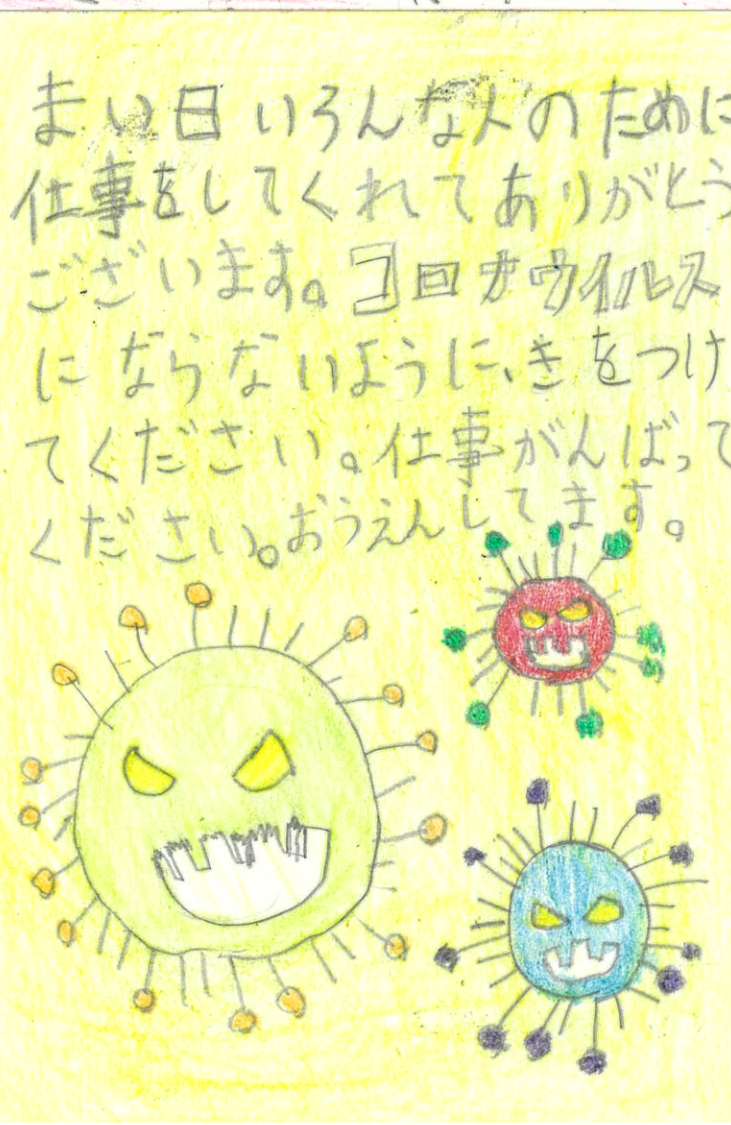 まい日いろんな人のために
仕事をしてくれてありがとう
ございます。コロナウイルス
にならないように、きをつけ
てください。仕事がんばって
ください。おうえんしてます。